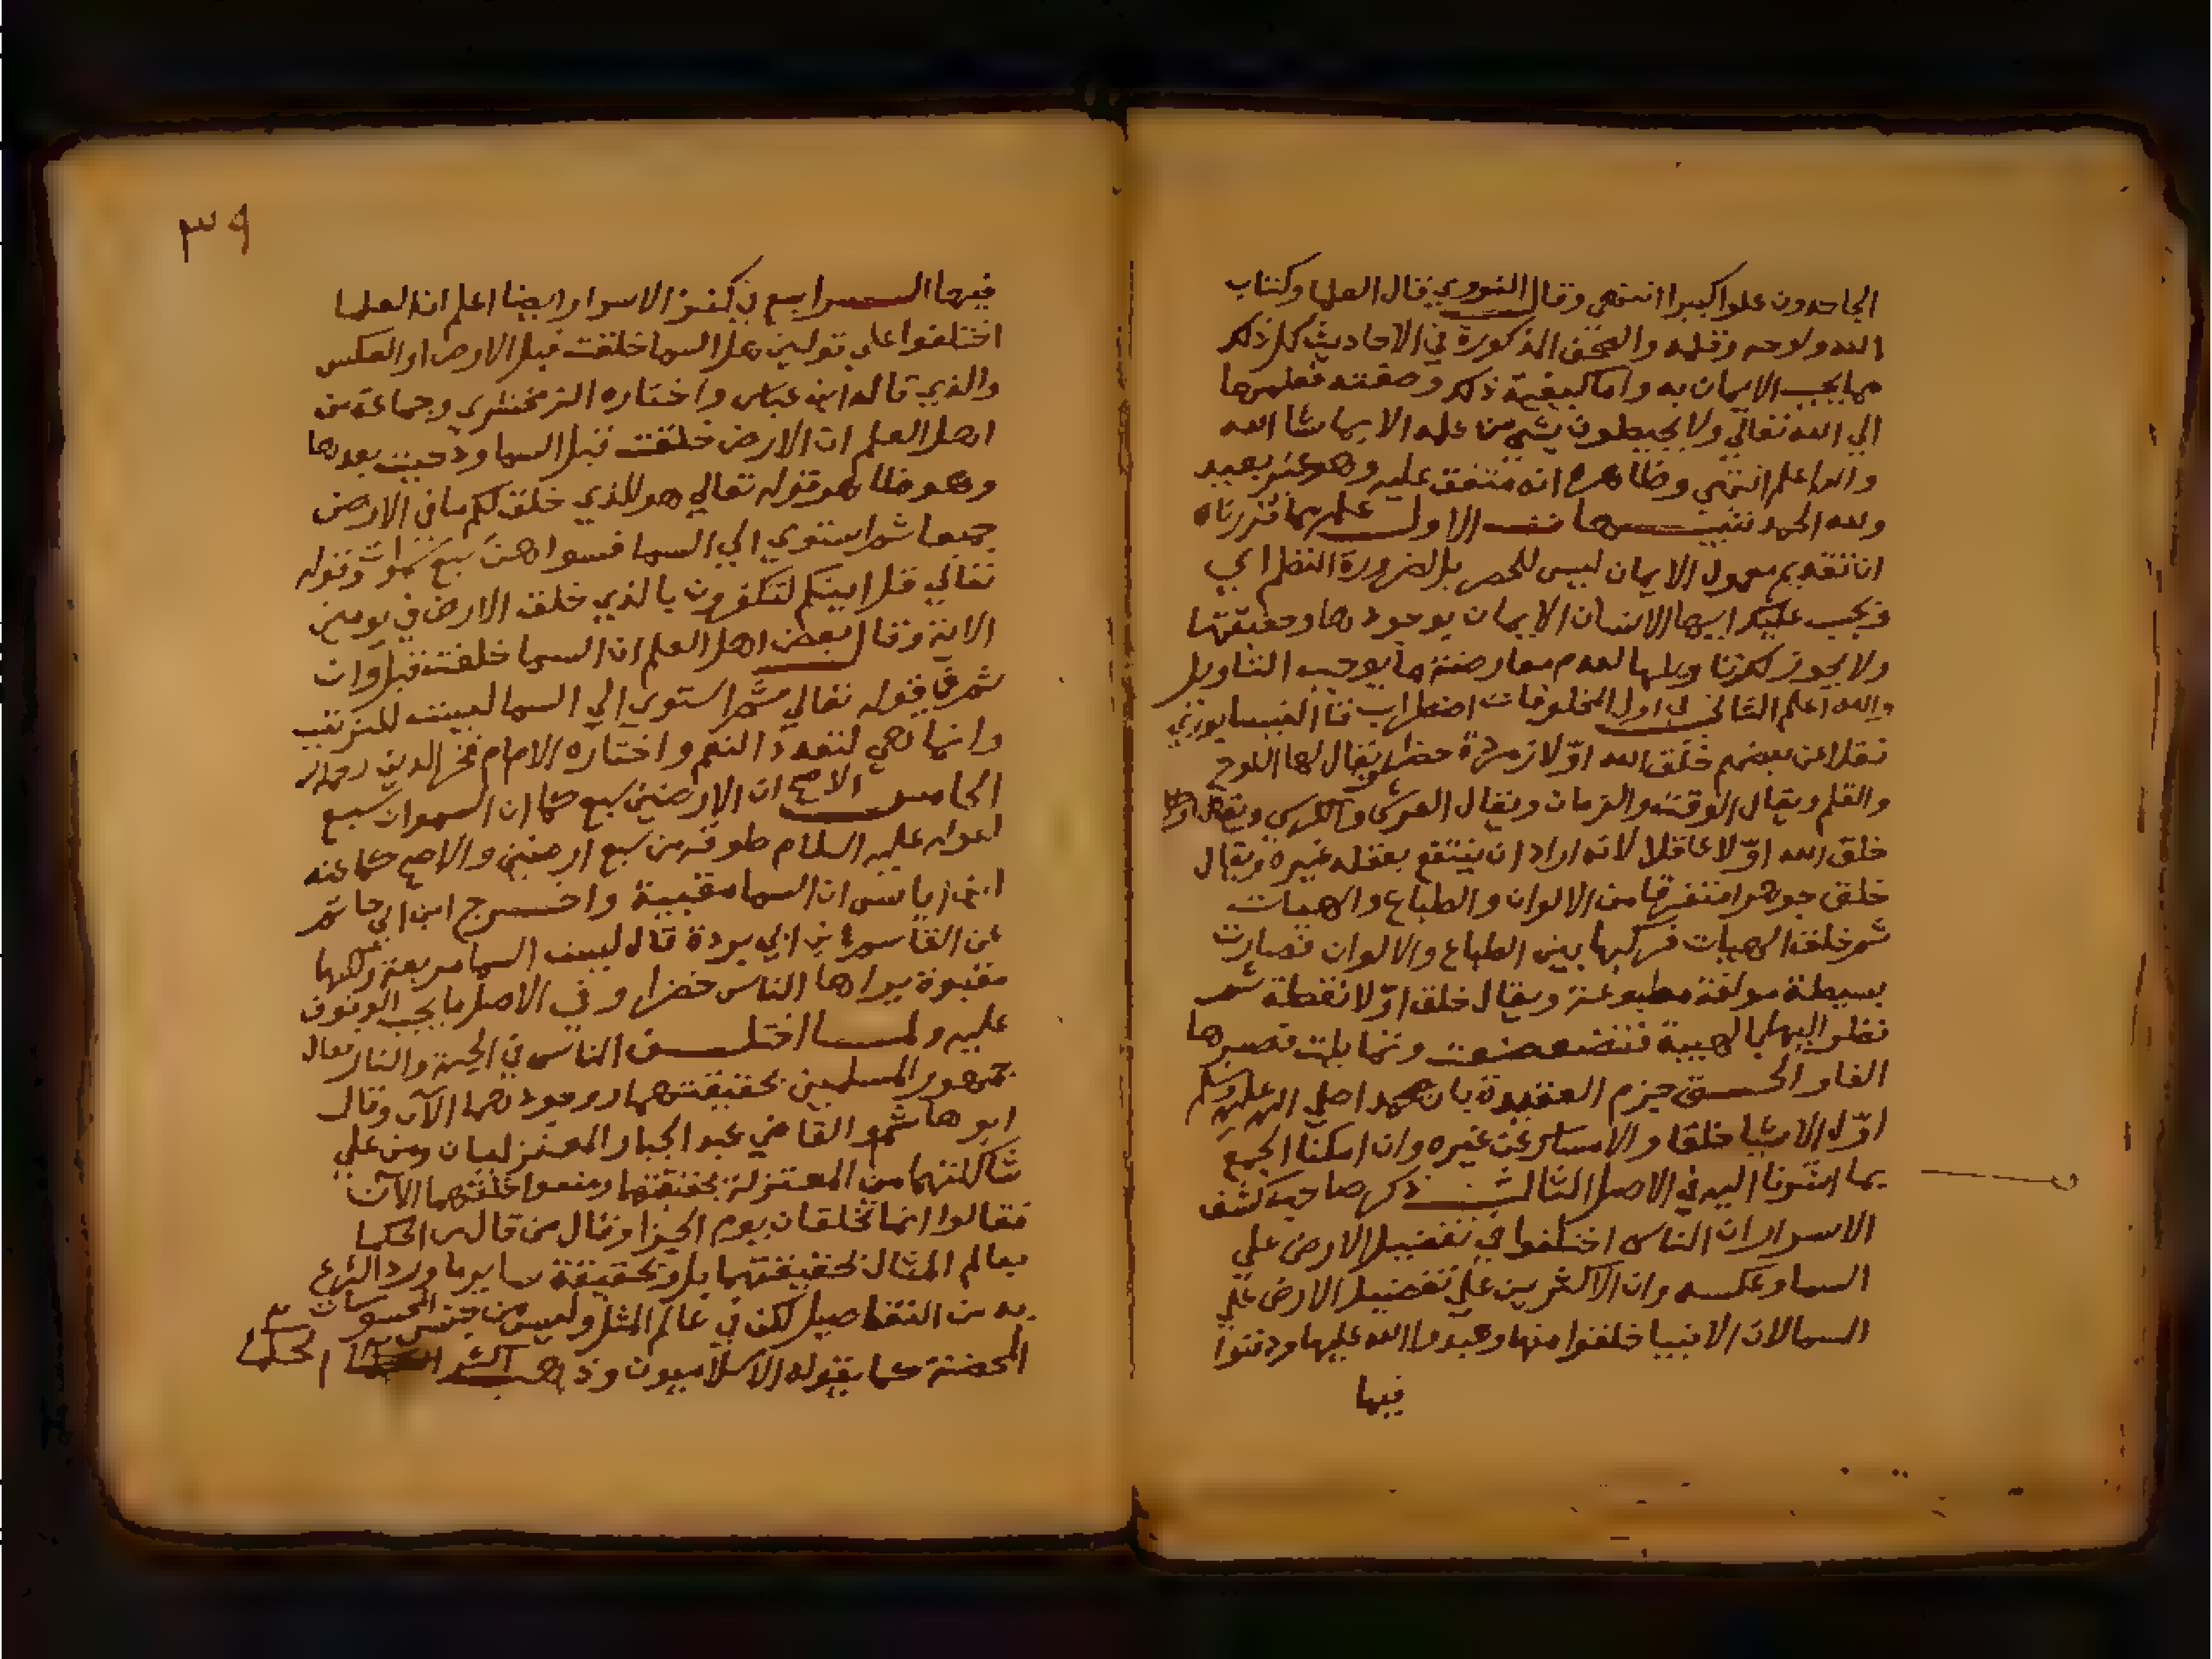 الجاحدون علوا كبيرا انتهى وقال النووي قال العلما وكتاب
الله ولوحه وقلمه والصحف المذكورة في الاحاديث كل ذلك
مما يجب الايمان به واما كيفية ذلك وصفته فعلمها
الي الله تعالي ولا يحيطون بشي من علمه الا بما شا الله
والله اعلم انتهي وظاهره انه متفق عليه وهو غير بعيد
ولله الحمد تنبيهات الاول علم مما قررناه
ان تقديم معمول الايمان ليس للحصر بل لضرورة النظم اي
ويجب عليك ايها الانسان الايمان بوجودها وحقيقتها
ولا يجوز لك تاويلها لعدم معارضة ما يوجب التاويل
والله اعلم الثاني في اول المخلوقات اضطراب قال النيسابوري
نقلا عن بعضهم خلق الله اوّلا زمردة خضرا ويقال لها اللوح
والقلم ويقال الوقت والزمان ويقال العرش والكرسي ويقال
خلق الله اوّلا عاقلا لانه اراد ان ينتفع بعقله غيره ويقال
خلق جوهرا متفرقا من الالوان والطباع والهيات
ثم خلق الهيات فركبها بين الطباع والالوان فصارت
بسيطة مولفة مطبوعة ويقال خلق اوّلا نقطة ثم
نظر اليها بالهيبة فتضعضعت وتمايلت فصيرها
الفا والحق جزم العقيدة بان محمد اصلي الله عليه وسلم
اوّل الاشيا خلقا والامساك عن غيره وان امكنا الجمع
بما اشرنا اليه في الاصل الثالث ذكر صاحب كشف
الاسرار ان الناس اختلفوا في تفضيل الارض علي
السما وعكسه وان الاكثرين علي تفضيل الارض علي
السما لان الانبيا خلقوا منها وعبدوا الله عليها ودفنوا
فيها
٣٩
فيها الرابع في كنز الاسرار ايضا اعلم ان العلما
اختلفوا علي قولين هل السما خلقت قبل الارض او العكس
والذي قاله ابن عباس واختاره الزمخشري وجماعة من
اهل العلم ان الارض خلقت قبل السما ودحيت بعدها
وهو ظاهر قوله تعالي هو الذي خلق لكم ما في الارض
جميعا ثم استوي الي السما فسواهن سبع سموات وقوله
تعالي قل ايينكم لتكفرون بالذي خلق الارض في يومين
الاية وقال بعض اهل العلم ان السما خلقت قبل وان
ثم في قوله تعالي ثم استوي الي السما ليست للترتيب
وانما هي لتعدد النعم واختاره الامام فخر الدين رحمه الله
الخامس الاصح ان الارضين سبع كما ان السموات سبع
لقوله عليه السلام طوقه من سبع ارضين والاصح كما عند
ابن اياس ان السما مقببة واخرج ابن ابي حاتم
عن القاسم ابن ابي بردة قال ليست السما مربعة ولكنها
مقبوة يراها الناس خضرا وفي الاصل ما يجب الوقوف
عليه ولما اختلف الناس في الجنة والنار فقال
جمهور المسلمين بحقيقتهما ووجودهما الآن وقال
ابو هاشم والقاضي عبد الجبار المعتزليان ومن علي
شاكلتهما من المعتزلة بحقيقتهما ومنعوا خلقهما الآن
فقالوا انما تخلقان يوم الجزا وقال من قال من الحكما
بعالم المثال بحقيقتهما بل وبحقيقة ساير ما ورد الشرع
به من التفاصيل لكن في عالم المثل وليس من جنس المحسوسات
المحضة كما يقوله الاسلاميون وذهب اكثر الحكما